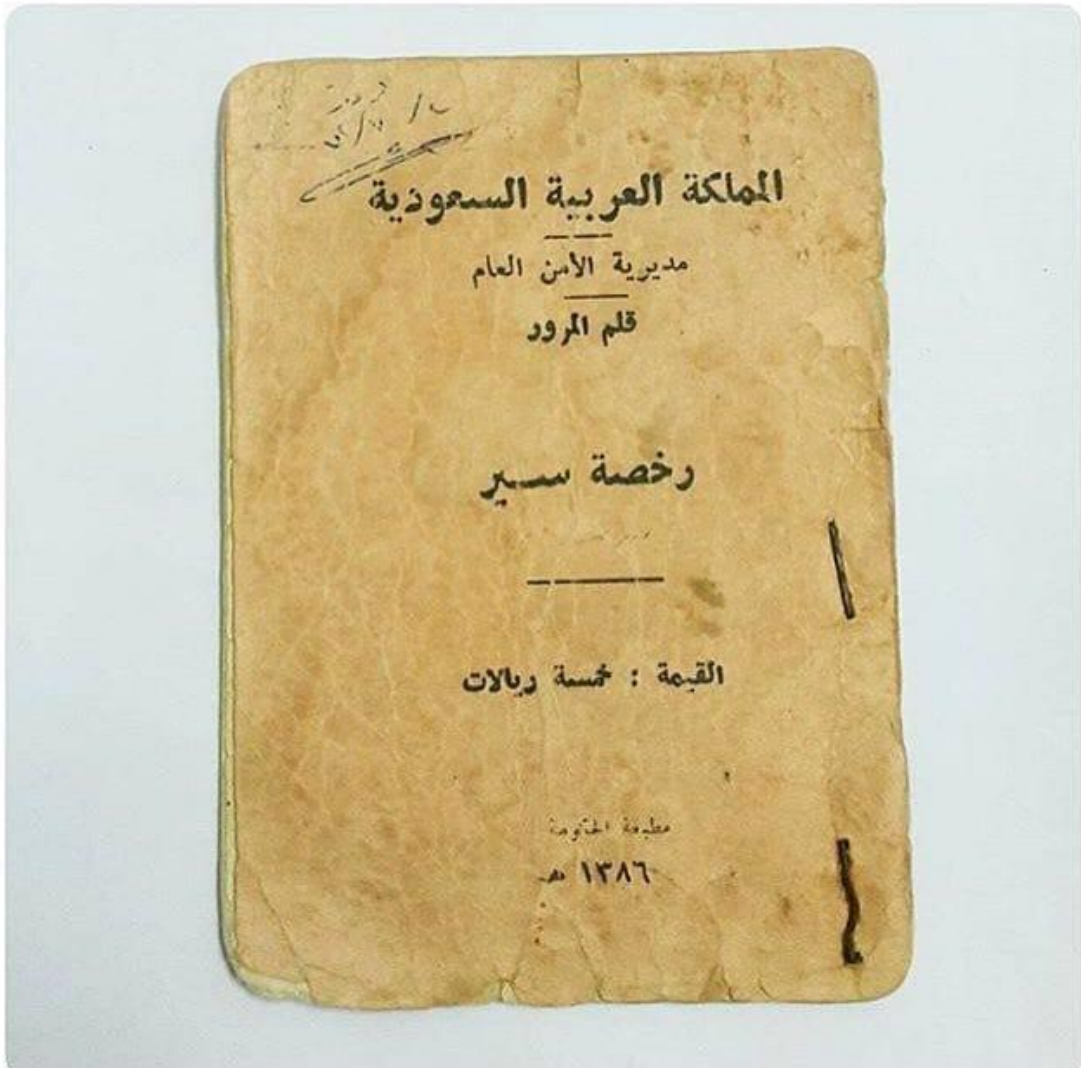 المملكة العربية السعودية
مديرية الأمن العام
قلم المرور
رخصة سير
القيمة : خمسة ريالات
مطبعة الحكومة
١٣٨٦ هـ